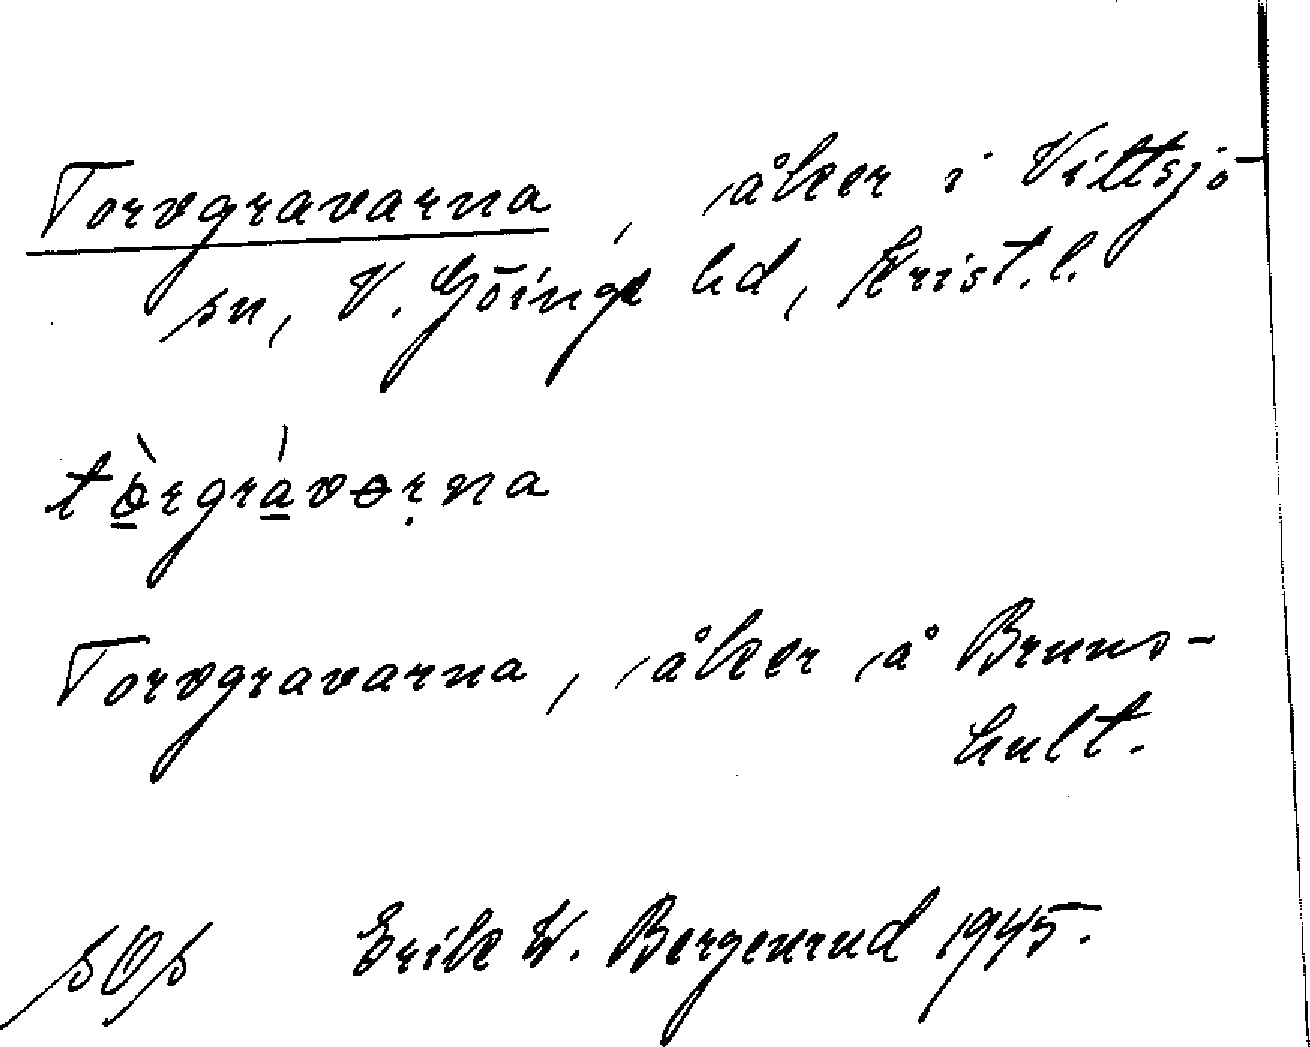 Torvgravarna, åker i Vittsjö
sn, V. Göinge hd, Krist. l.
tòrgràvərna
Torvgravarna, åker å Bruns-
hult.
Erik W. Bergenrud 1945.